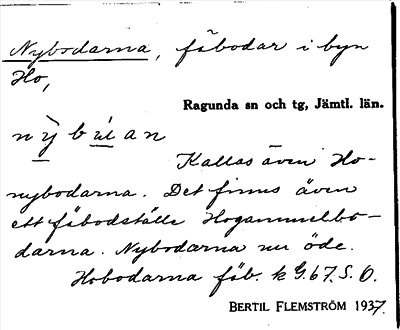 Nybodarna, fäbodar i byn
Ho,
Ragunda sn och tg, Jämtl. län.
Kallas även Ho-
nybodarna. Det finns även
ett fäbodställe Hogammelbo-
darna. Nybodarna nu öde.
Hobodarna fäb. k G. 67. S. O.
BERTIL FLEMSTRÖM 1937.